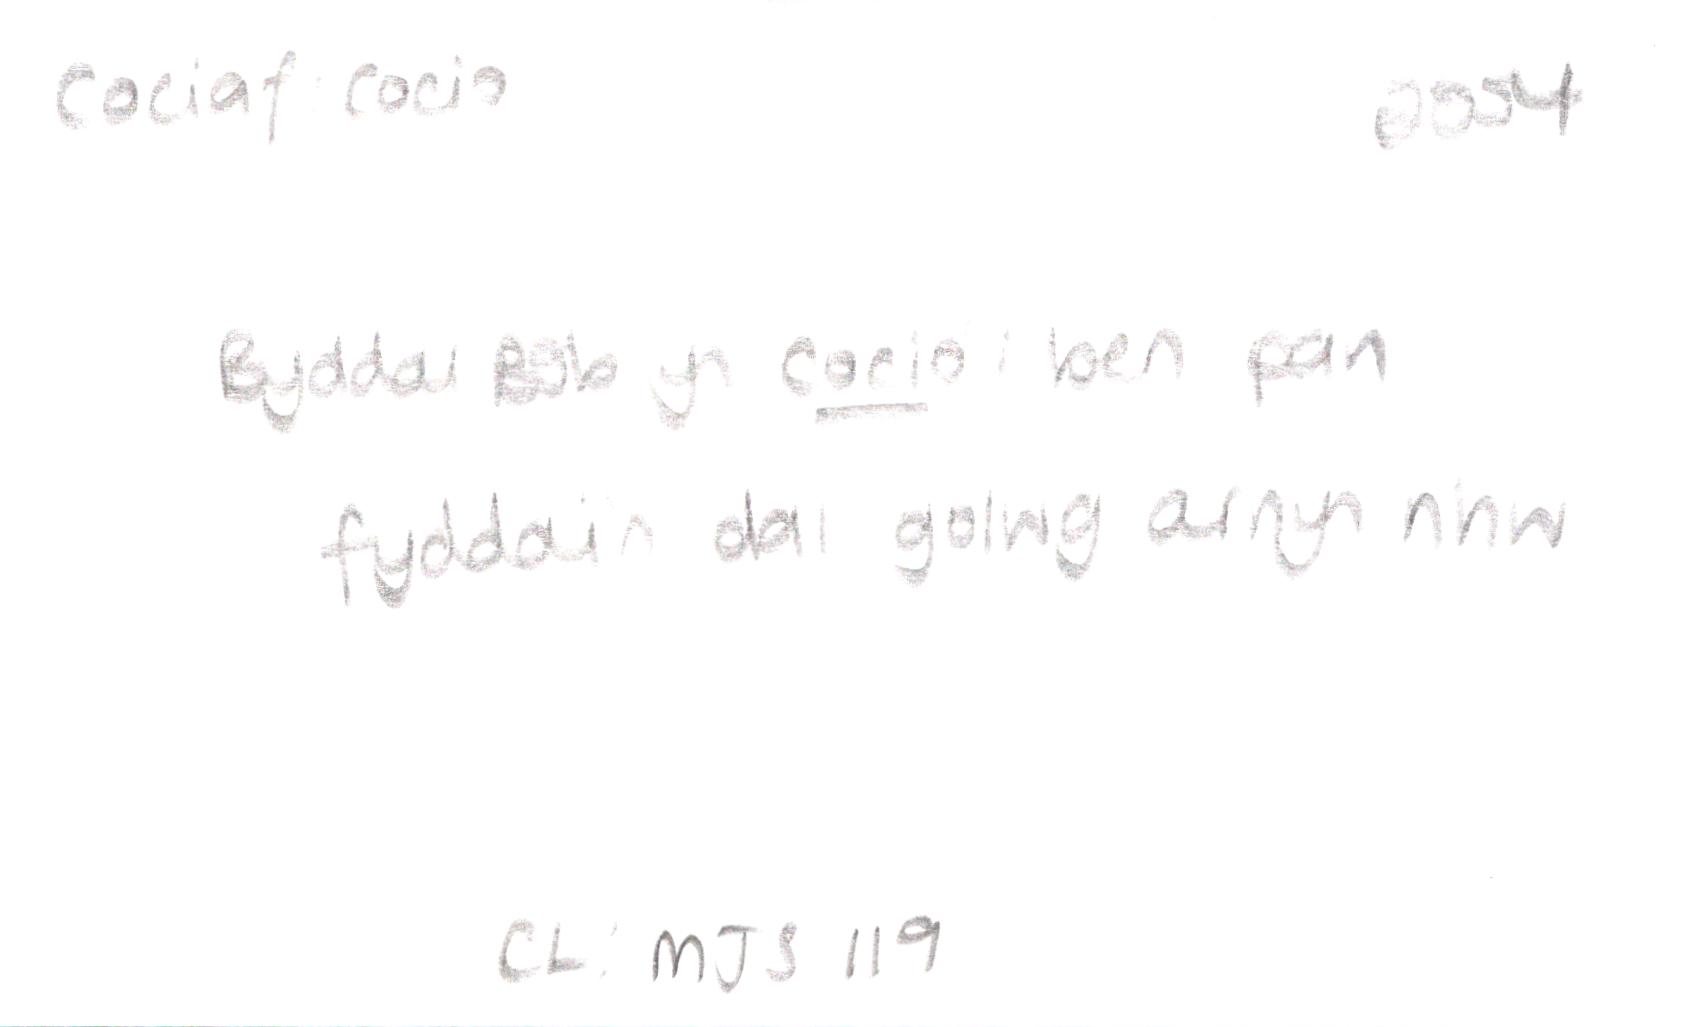 cociaf : cocio 2054
Byddai Bob yn cocio i ben pan
fyddai'n dal golwg arnyn nhw
CL: MJS 119